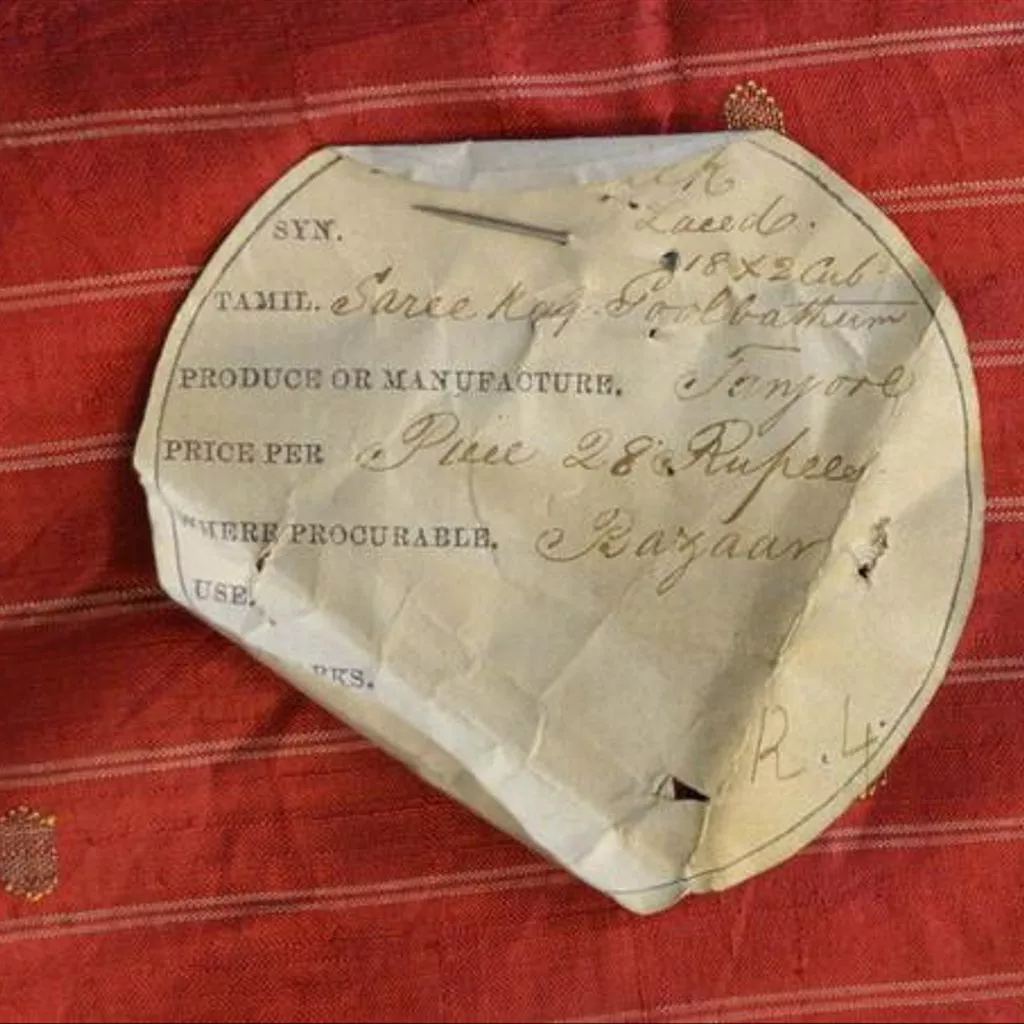 Laced.
SYN.
18 x 2 Cub^s
TAMIL. Saree
PRODUCE OR MANUFACTURE. Tanjore
PRICE PER Piece 28 Rupees
WHERE PROCURABLE. Bazaar
USE.
RKS.
R. 4.